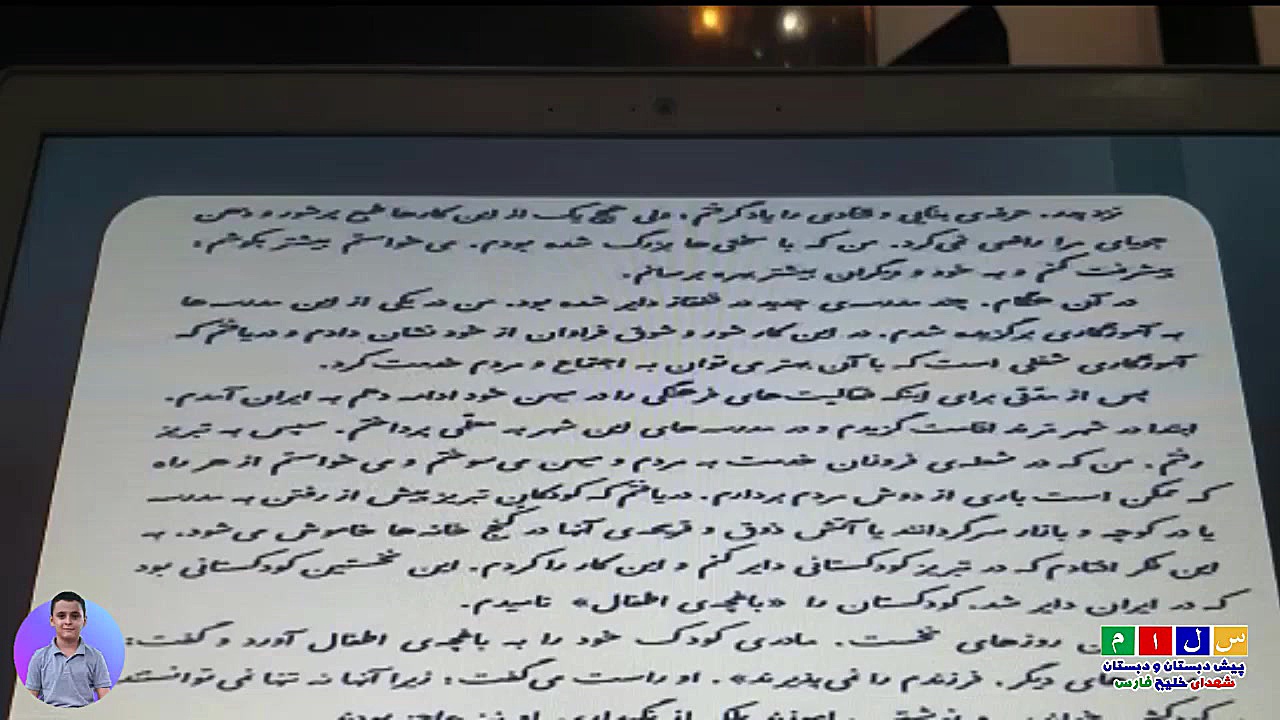 نزد پدر، حرفه‌ی بنایی و قنادی را یاد گرفتم؛ ولی هیچ یک از این کارها طبع پرشور و ذهن
جویای مرا راضی نمی‌کرد. من که با سختی‌ها بزرگ شده بودم، می‌خواستم بیشتر بکوشم؛
پیشرفت کنم و به خود و دیگران بیشتر بهره برسانم.
در آن هنگام، چند مدرسه‌ی جدید در قفقاز دایر شده بود. من در یکی از این مدرسه‌ها
به آموزگاری برگزیده شدم. در این کار شور و شوق فراوان از خود نشان دادم و دریافتم که
آموزگاری شغلی است که با آن بهتر می‌توان به اجتماع و مردم خدمت کرد.
پس از مدتی برای اینکه فعالیت‌های فرهنگی را در میهن خود ادامه دهم به ایران آمدم.
ابتدا در شهر مرند اقامت گزیدم و در مدرسه‌های این شهر به معلمی پرداختم. سپس به تبریز
رفتم. من که در شعله‌ی فروزان خدمت به مردم و میهن می‌سوختم و می‌خواستم از هر راه
که ممکن است باری از دوش مردم بردارم، دریافتم که کودکان تبریز پیش از رفتن به مدرسه
یا در کوچه و بازار سرگردانند یا آتش ذوق و قریحه‌ی آنها در کنج خانه‌ها خاموش می‌شود. به
این فکر افتادم که در تبریز کودکستانی دایر کنم و این کار را کردم. این نخستین کودکستانی بود
که در ایران دایر شد. کودکستان را «باغچه‌ی اطفال» نامیدم.
روزهای نخست، مادری کودک خود را به باغچه‌ی اطفال آورد و گفت:
های دیگر، فرزندم را نمی‌پذیرند». او راست می‌گفت؛ زیرا آنها نه تنها نمی‌توانستند
س ل ا م
پیش دبستان و دبستان
شهدای خلیج فارس